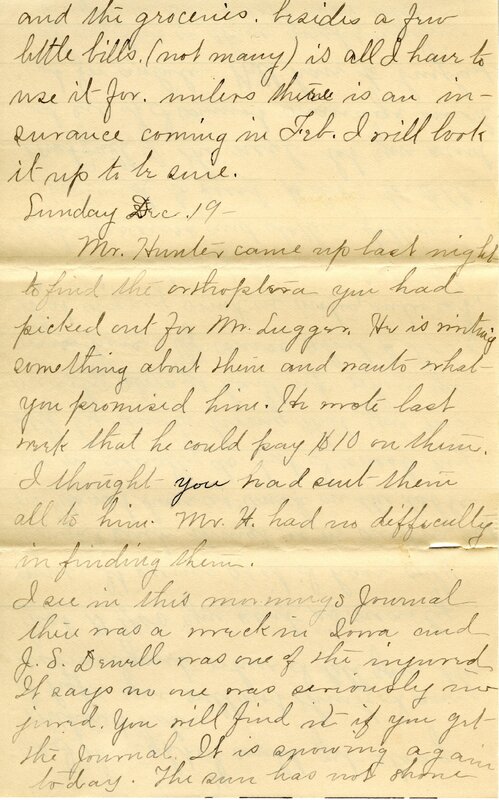 and the groceries. besides a few
little bills. (not many) is all I have to
use it for. unless there is an in-
surance coming in Feb. I will look
it up to be sure.
Sunday Dec. 19-
Mr. Hunter came up last night
to find the orthoptera you had
picked out for Mr. Lugger. He is writing
something about them and wants what
you promised him. He wrote last
week that he could pay $10 on them.
I thought you had sent them
all to him. Mr. H. had no difficulty
in finding them.
I see in this mornings Journal
there was a wreck in Iowa and
J. S. Dewell was one of the injured
It says no one was seriously in-
jured. You will find it if you get
the Journal. It is snowing again
today. The sun has not shone